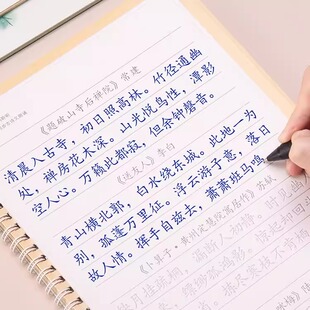 《题破山寺后禅院》常建
清晨入古寺，初日照高林。竹径通幽
处，禅房花木深。山光悦鸟性，潭影
空人心。万籁此都寂，但余钟磬音。
《送友人》李白
青山横北郭，白水绕东城。此地一为
别，孤蓬万里征。浮云游子意，落日
故人情。挥手自兹去，萧萧班马鸣
《卜算子·黄州定慧院寓居作》苏轼
缺月挂疏桐，漏断人初静。